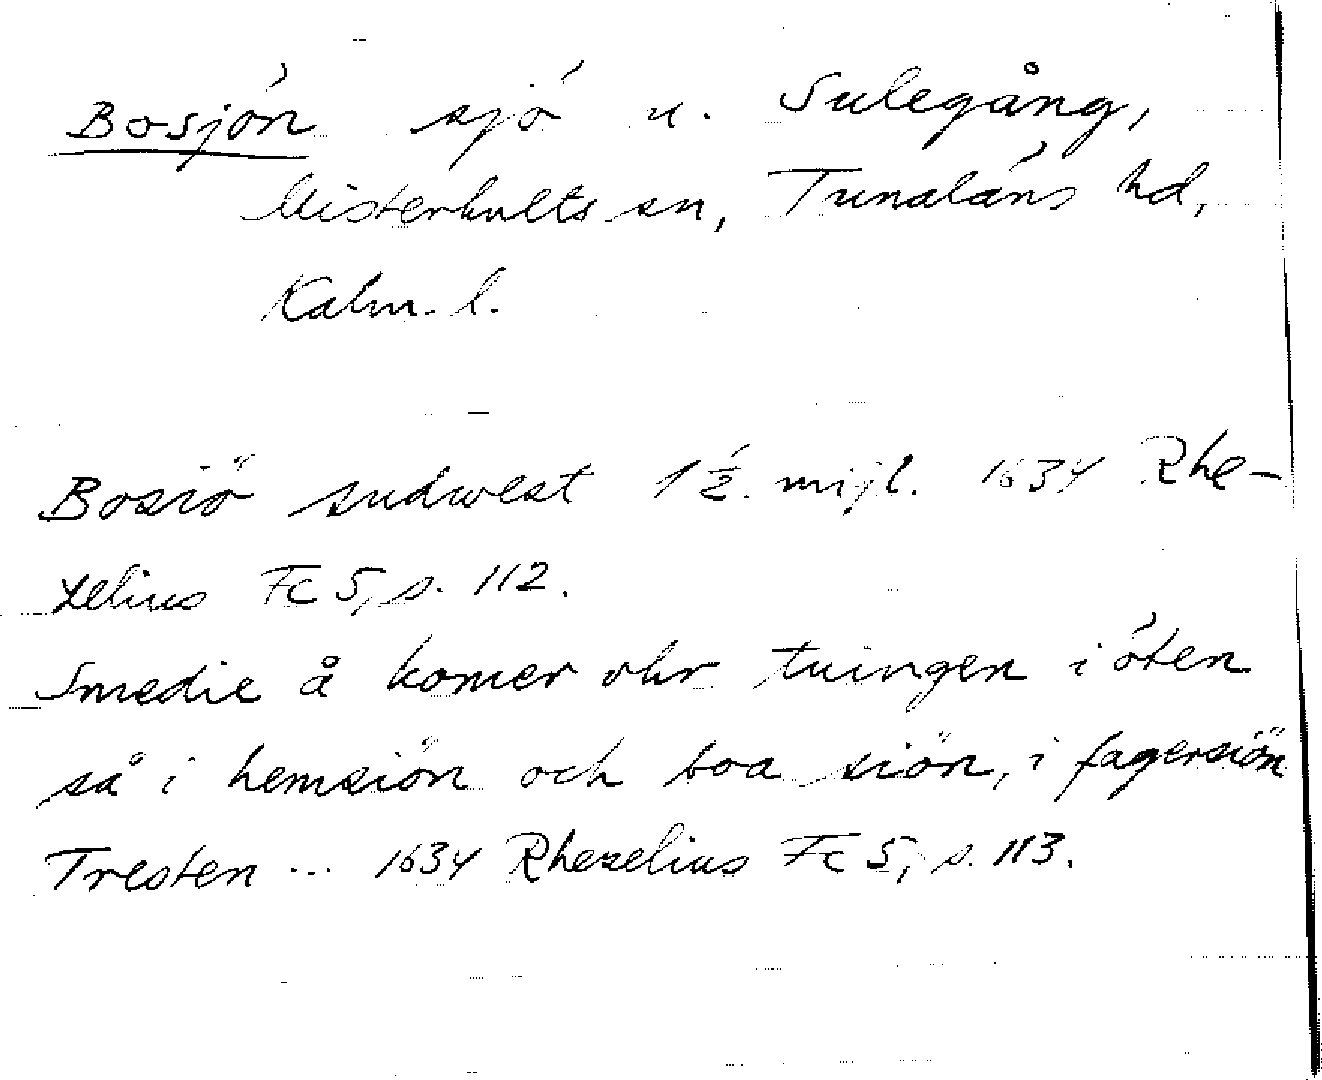 Bosjön sjö u. Sulegång,
Misterhults sn, Tunaläns hd,
Kalm. l.
Bosiö sudwest 1½ mijl. 1634 Rhe-
zelius Fc 5, s. 112.
Smedie å komer uhr tuingen i öten
så i hemsiön och boa siön, i fagersiön
Tresten ... 1634 Rhezelius Fc 5, s. 113.